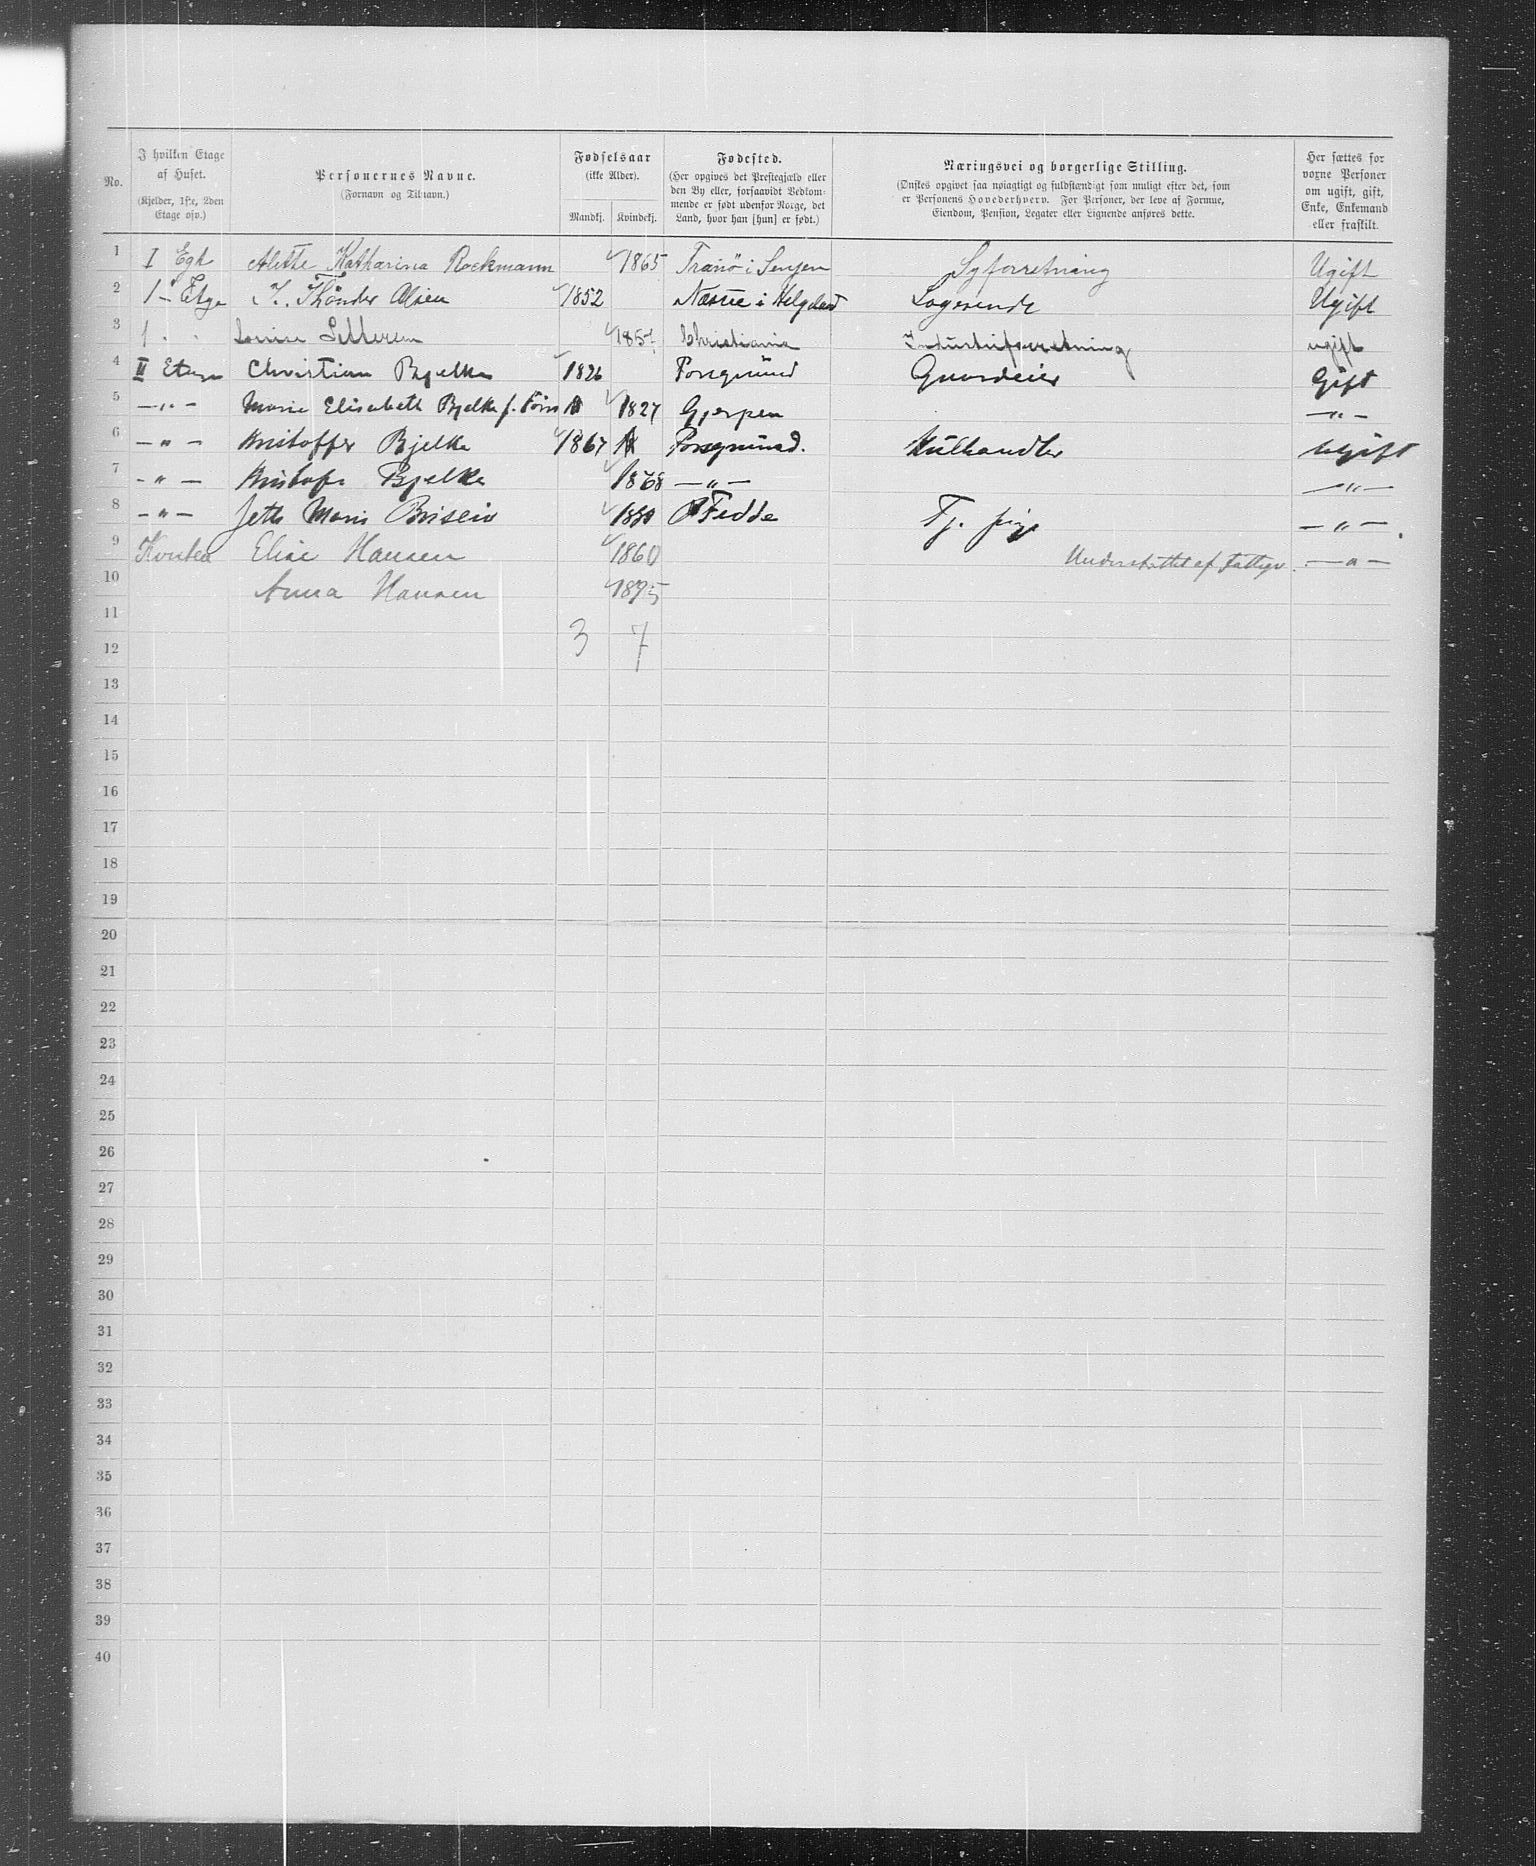 No.
I hvilken Etage af Huset.
(Kjelder, 1ste, 2den Etage osv.)
Personernes Navne.
(Fornavn og Tilnavn.)
Fødselsaar
(ikke Alder).
Mandkj. Kvindekj.
Fødested.
(Her opgives det Prestegjæld eller
den By eller, forsaavidt Vedkom-
mende er født udenfor Norge, det
Land, hvor han [hun] er født.)
Næringsvei og borgerlige Stilling.
(Ønskes opgivet saa nøiagtigt og fuldstændigt som muligt efter det, som
er Personens Hovederhverv. For Personer, der leve af Formue,
Eiendom, Pension, Legater eller Lignende anføres dette.
Her sættes for
voxne Personer
om ugift, gift,
Enke, Enkemand
eller fraskilt.
1 I Egt Alette Katharina Rockmann 1865 Tranø i Senjen Syforretning Ugift
2 1 - Etge Thönder Olsen 1852 i Helgeland Logerende Ugift
3 1 " " 1857 Christiania Industriforretning ugift
4 II Etage Christian Bjelke 1826 Porsgrund Gaardeier Gift
5 — " — Marie Elisabeth Bjelke f. 1827 Gjerpen — " —
6 — " — Kristoffer Bjelke 1867 Porsgrund. Kulhandler Ugift
7 — " — Bjelke 1868 — " — — " —
8 — " — Marie Fedde Tj. pige — " —
9 Elise Hansen 1860 Understøttet af Fattigv. — " —
10 Anna Hansen 1895
11
12 3 7
13
14
15
16
17
18
19
20
21
22
23
24
25
26
27
28
29
30
31
32
33
34
35
36
37
38
39
40